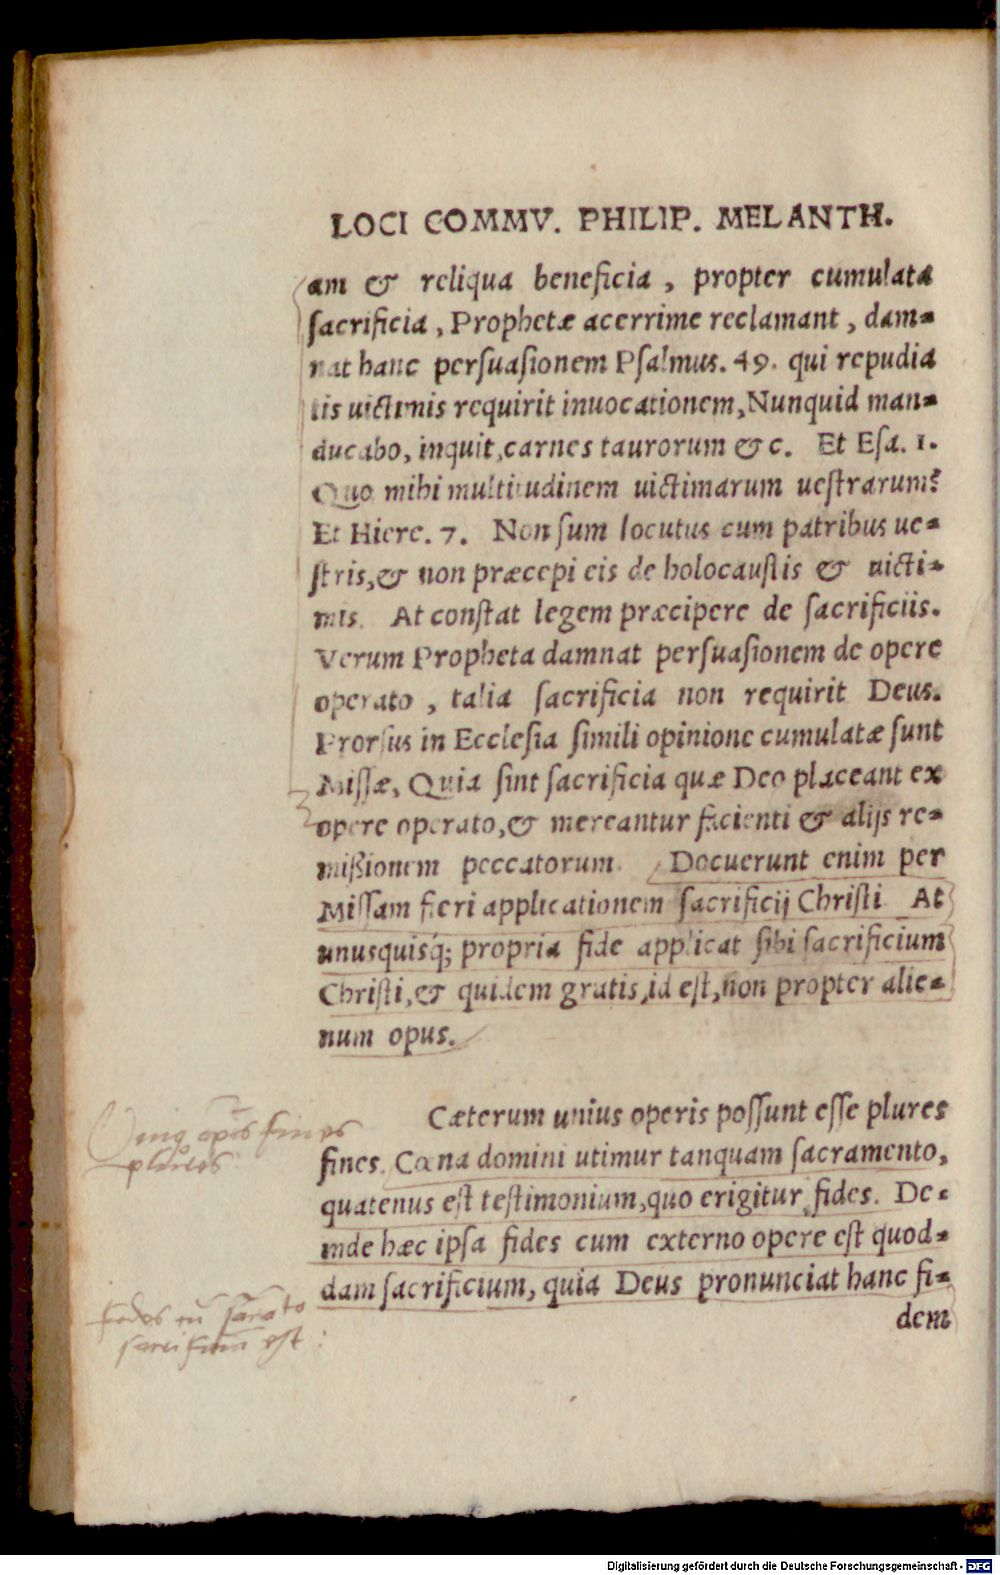 LOCI COMMV. PHILIP. MELANTH.
am & reliqua beneficia, propter cumulata
sacrificia, Prophetæ acerrime reclamant, dam-
nat hanc persuasionem Psalmus. 49. qui repudia
tis uictimis requirit inuocationem, Nunquid man-
ducabo, inquit, carnes taurorum &c. Et Esa. 1.
Quo mihi multitudinem uictimarum uestrarum?
Et Hiere. 7. Non sum locutus cum patribus ue-
stris, & non præcepi eis de holocaustis & uicti-
mis. At constat legem præcipere de sacrificiis.
Verum Propheta damnat persuasionem de opere
operato, talia sacrificia non requirit Deus.
Prorsus in Ecclesia simili opinione cumulatæ sunt
Missæ, Quia sint sacrificia quæ Deo placeant ex
opere operato, & mereantur facienti & alijs re-
mißionem peccatorum. Docuerunt enim per
Missam fieri applicationem sacrificij Christi At
unusquisq́; propria fide applicat sibi sacrificium
Christi, & quidem gratis, id est, non propter alie-
num opus.
Cæterum unius operis possunt esse plures
fines. Cœna domini utimur tanquam sacramento,
quatenus est testimonium, quo erigitur fides. De-
inde hæc ipsa fides cum externo opere est quod-
dam sacrificium, quia Deus pronunciat hanc fi-
dem
opis fines
plures
fides cū
est
Digitalisierung gefördert durch die Deutsche Forschungsgemeinschaft - DFG